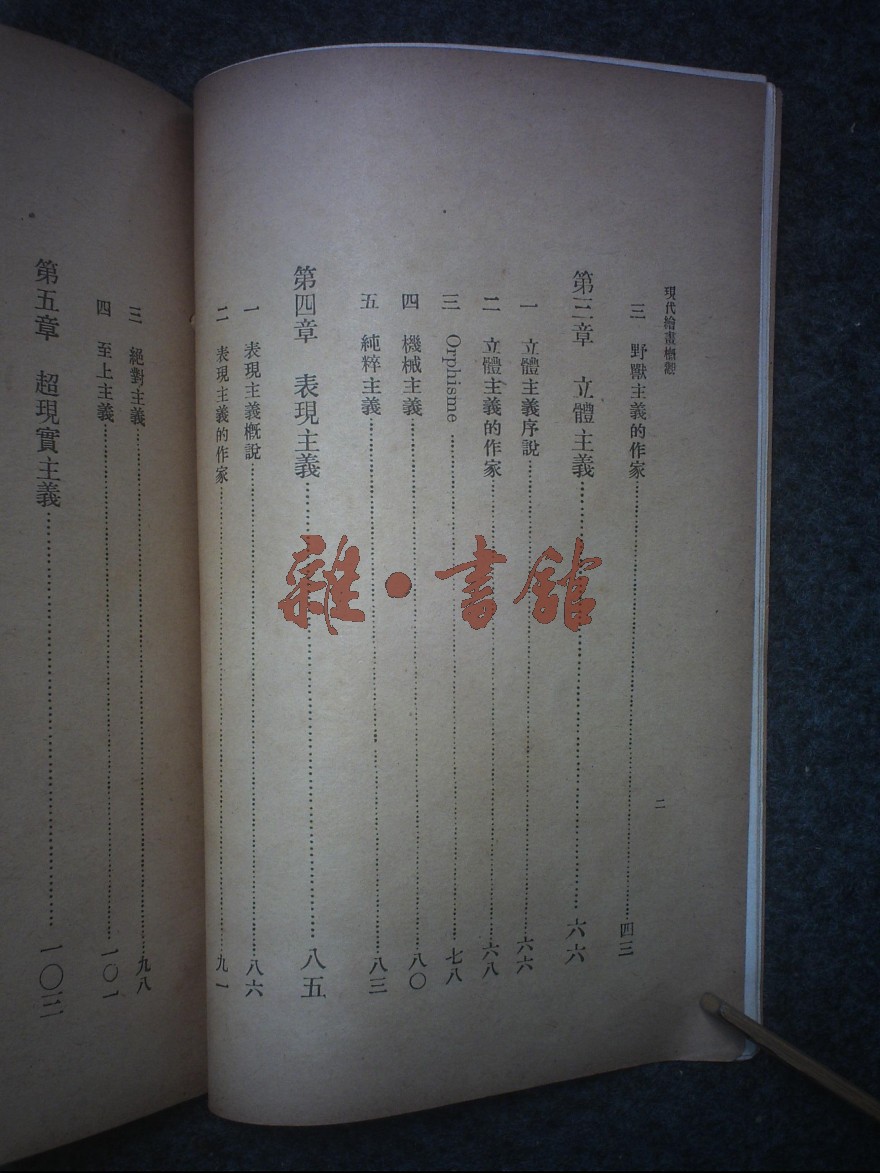 現代繪畫概觀
二
三 野獸主義的作家……四三
第三章 立體主義……六六
一 立體主義序說……六六
二 立體主義的作家……六八
三 Orphisme……七八
四 機械主義……八〇
五 純粹主義……八三
第四章 表現主義……八五
一 表現主義槪說……八六
二 表現主義的作家……九一
三 絕對主義……九八
四 至上主義……一〇一
第五章 超現實主義……一〇三
雜·書館